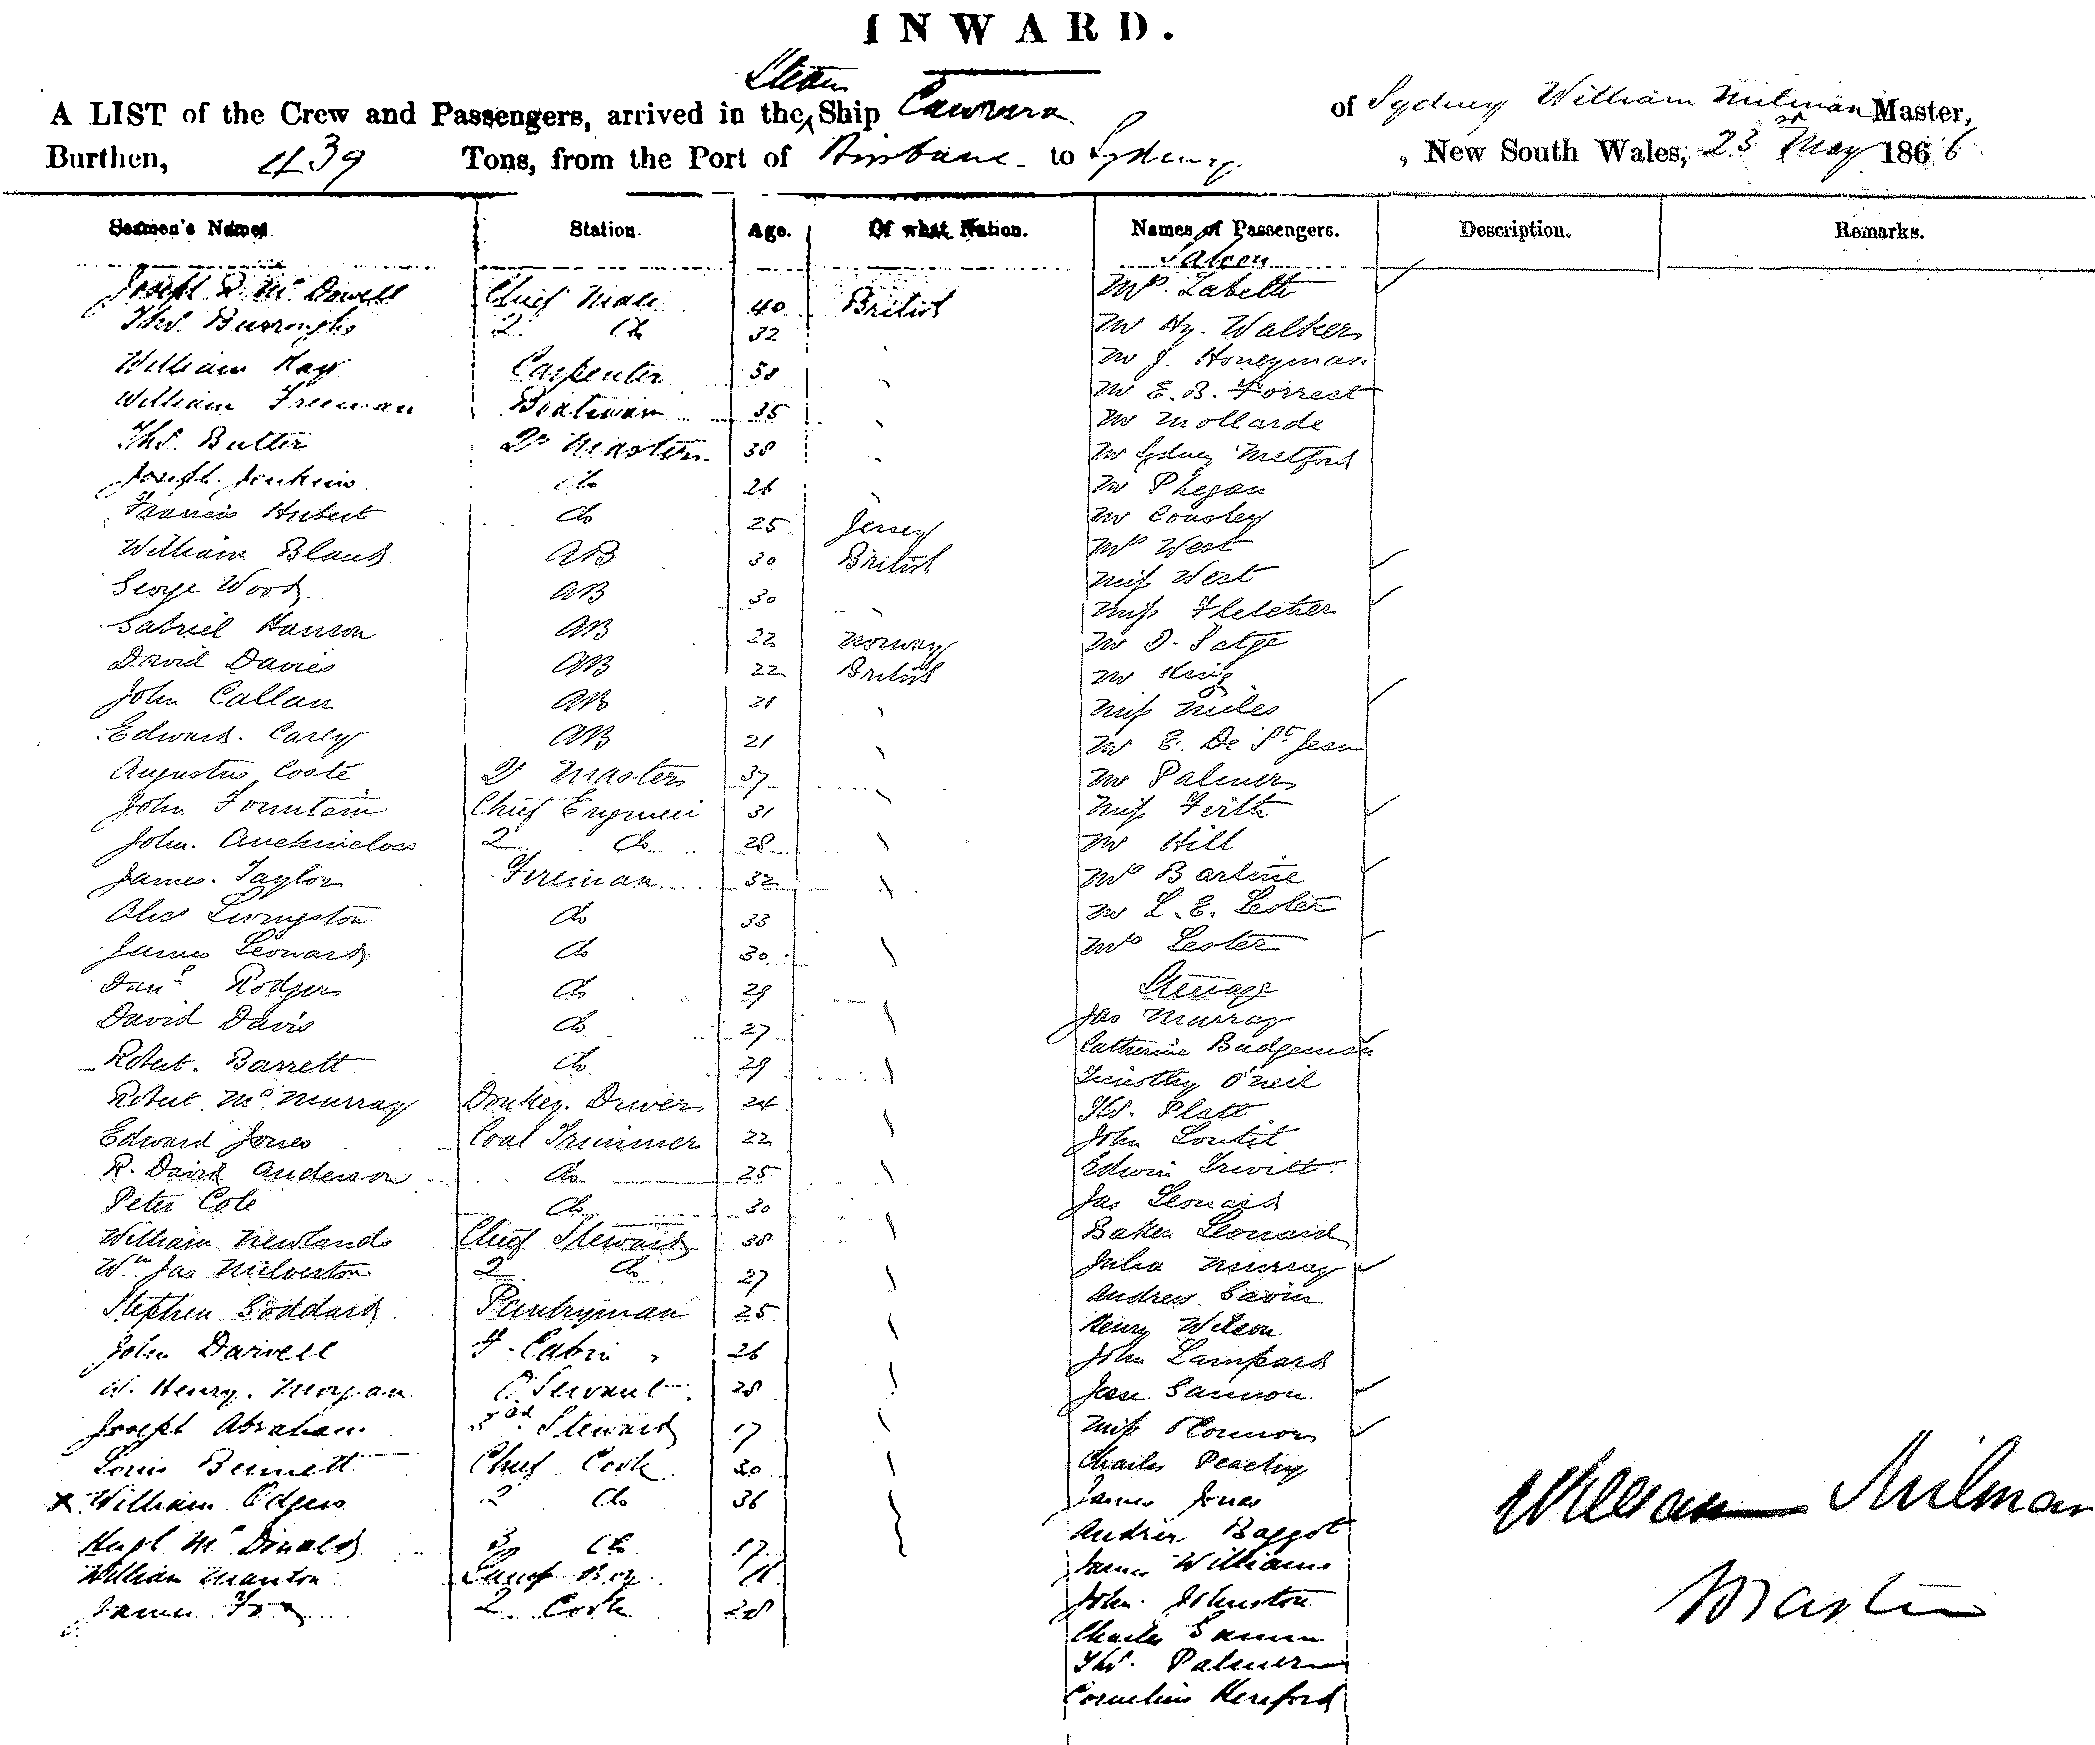 INWARD.
Steam
A LIST of the Crew and Passengers, arrived in the Ship Cawarra of Sydney William Milman Master,
Burthen, 439 Tons, from the Port of Brisbane to Sydney, New South Wales, 23 May 1866
Seamen's Names Station. Age. Of what Nation. Names of Passengers. Description. Remarks.
Saloon
Joseph R. McDowell Chief Mate 40 British Mrs. Labette
Thos. Burroughs 2 do 32 Mr Hy. Walker
William Kay Carpenter 38 Mr J. Honeyman
William Freeman Boatswain 35 Mr E. B. Forrest
Thos. Butler Qr Master 38 Mr Mollarde
Joseph Jenkins do 26 Mr Sydney Metford
Francis Hubert do 25 Jersey Mr Phegan
William Bland AB 30 British Mr Cousley
George Wood AB 30 Mrs West
Gabriel Hanson AB 22 Norway Miss West
David Davies AB 22 British Miss Fletcher
John Callan AB 21 Mr D. Patge
Edward Carly AB 21 Mr King
Augustus Coste Qr Master 37 Miss Miles
John Fountain Chief Engineer 31 Mr E. De St Jean
John Auchincloss 2 do 28 Mr Palmer
James Taylor Fireman 32 Miss Firth
Alex Livingston do 33 Mr Hill
James Leonard do 30 Mrs Bartine
Danl Rodgers do 29 Mr L. E. Lester
David Davis do 27 Mrs Lester
Robert Barrett do 29 Steerage
Robert McMurray Donkey Driver 24 Jas Murray
Edward Jones Coal Trimmer 22 Catherine Budgeman
R. David Anderson do 25 Timothy O'Neil
Peter Cole do 30 Thos. Platt
William Newlands Chief Steward 38 John Loutit
Wm Jas Milverton 2 do 27 Edwin Trivitt
Stephen Goddard Pantryman 25 Jas Leonard
John Darvell F. Cabin 26 Baker Leonard
W. Henry Morgan Servant 28 Julia Murray
Joseph Abraham Steward 17 Andrew Gavin
Louis Bennett Chief Cook 30 Henry Wilson
x William Odgers 2 do 36 John Lampard
Hugh McDonald 3 do 17 Jane Gannon
William Manton Lamp Boy Miss O'Connor
James Fox 2 Cook 28 Charles Peachy
James Jones
Andrew Baggot
James Williams
John Johnston
Charles
Thos. Palmer
Cornelius Hereford
William Milman
Master